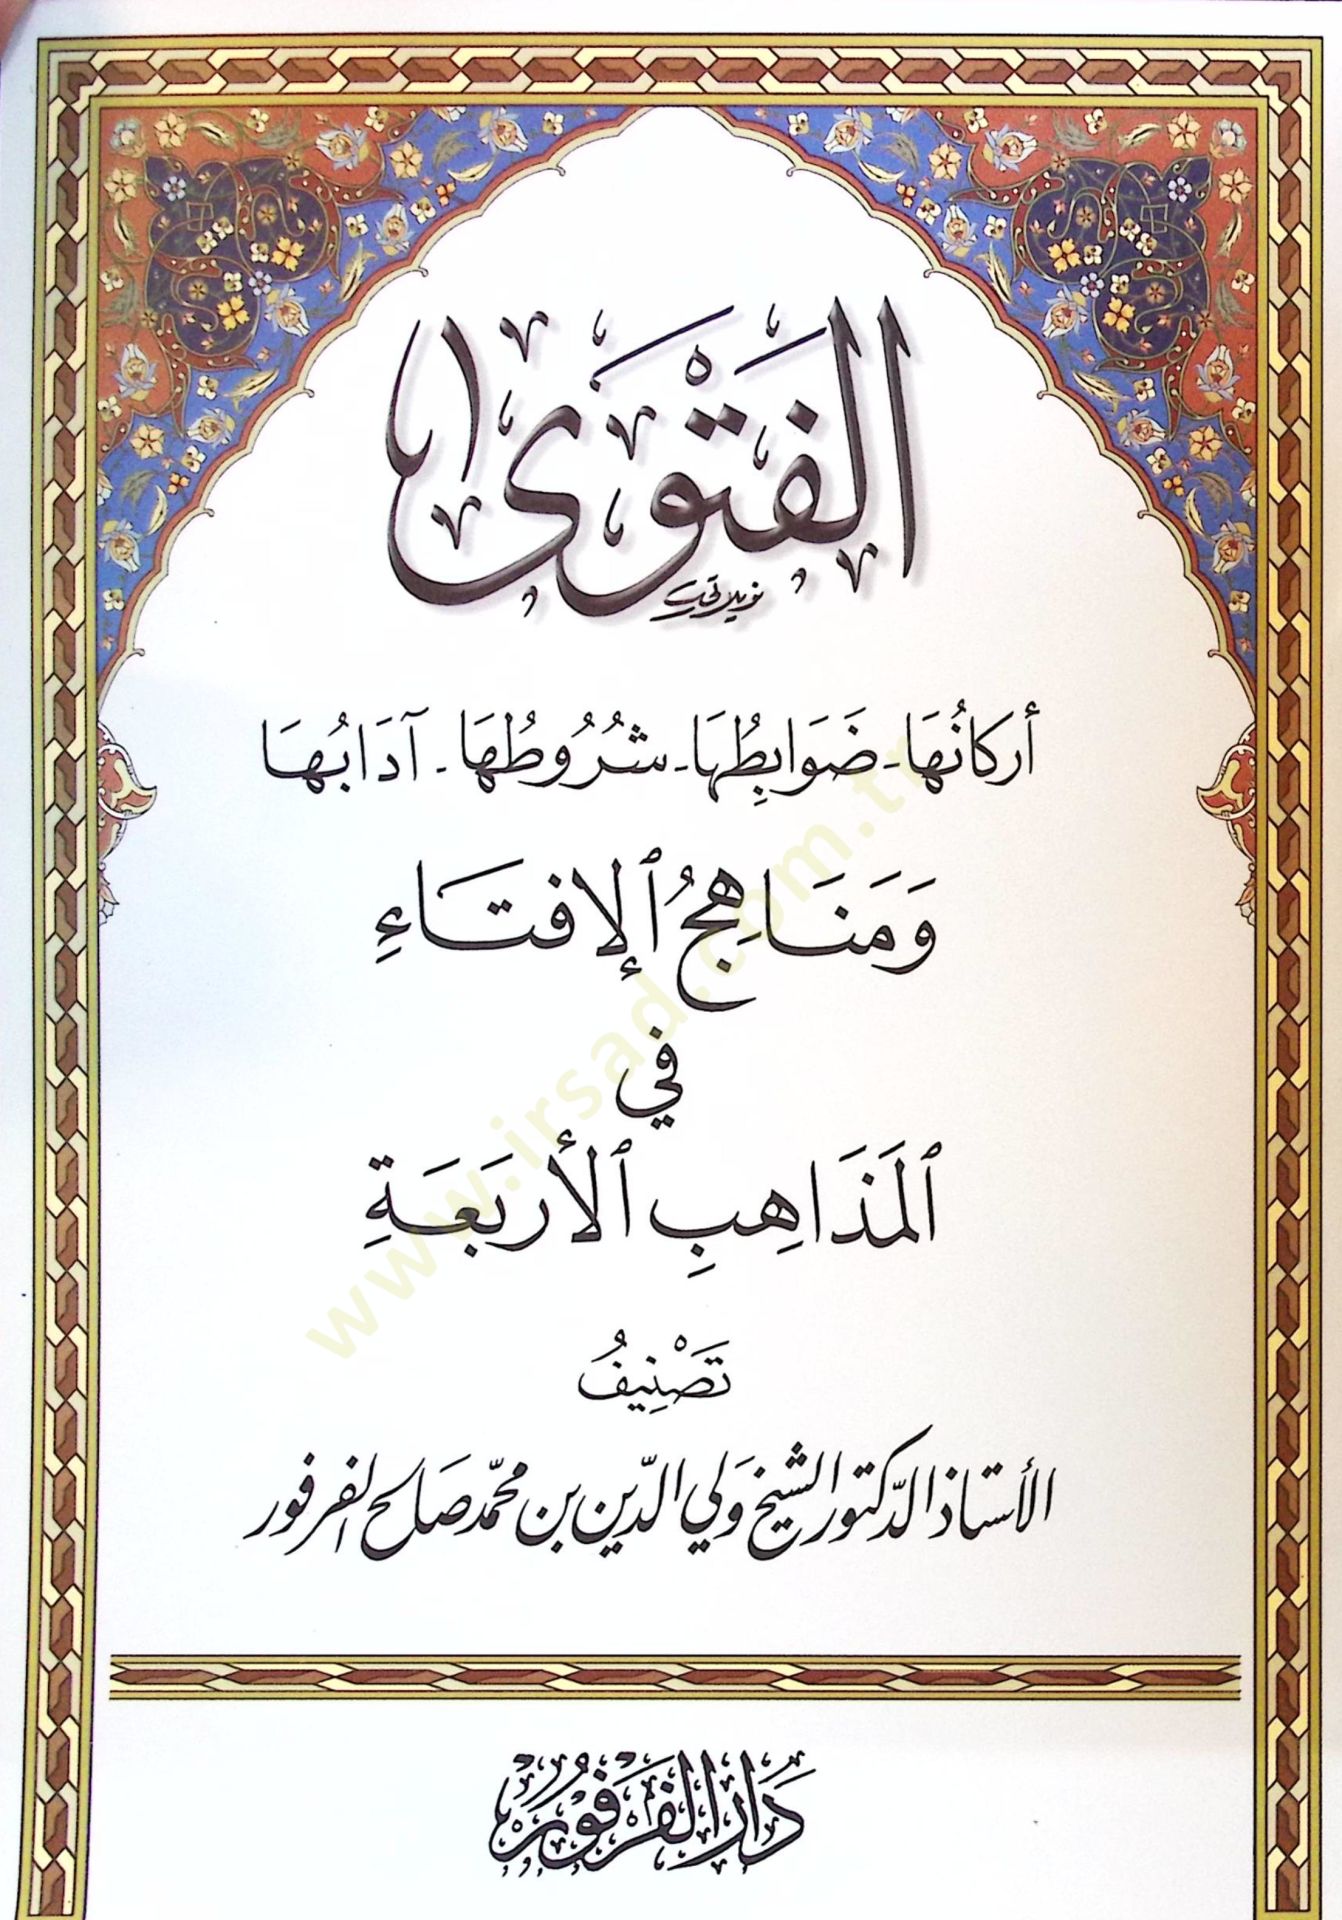 الفَتْوَى
أركانُهَا - ضَوَابِطُهَا - شُرُوطُهَا - آدَابُهَا
وَمَنَاهِجُ ٱلإفتَاءِ
في
ٱلمَذَاهِبِ ٱلأربَعَةِ
تَصْنِيفُ
الأستاذ الدّكتور الشيخ وَلي الدّين بن محمّد صَالح الفرفور
دَار الفَرفُور
www.irsad.com.tr